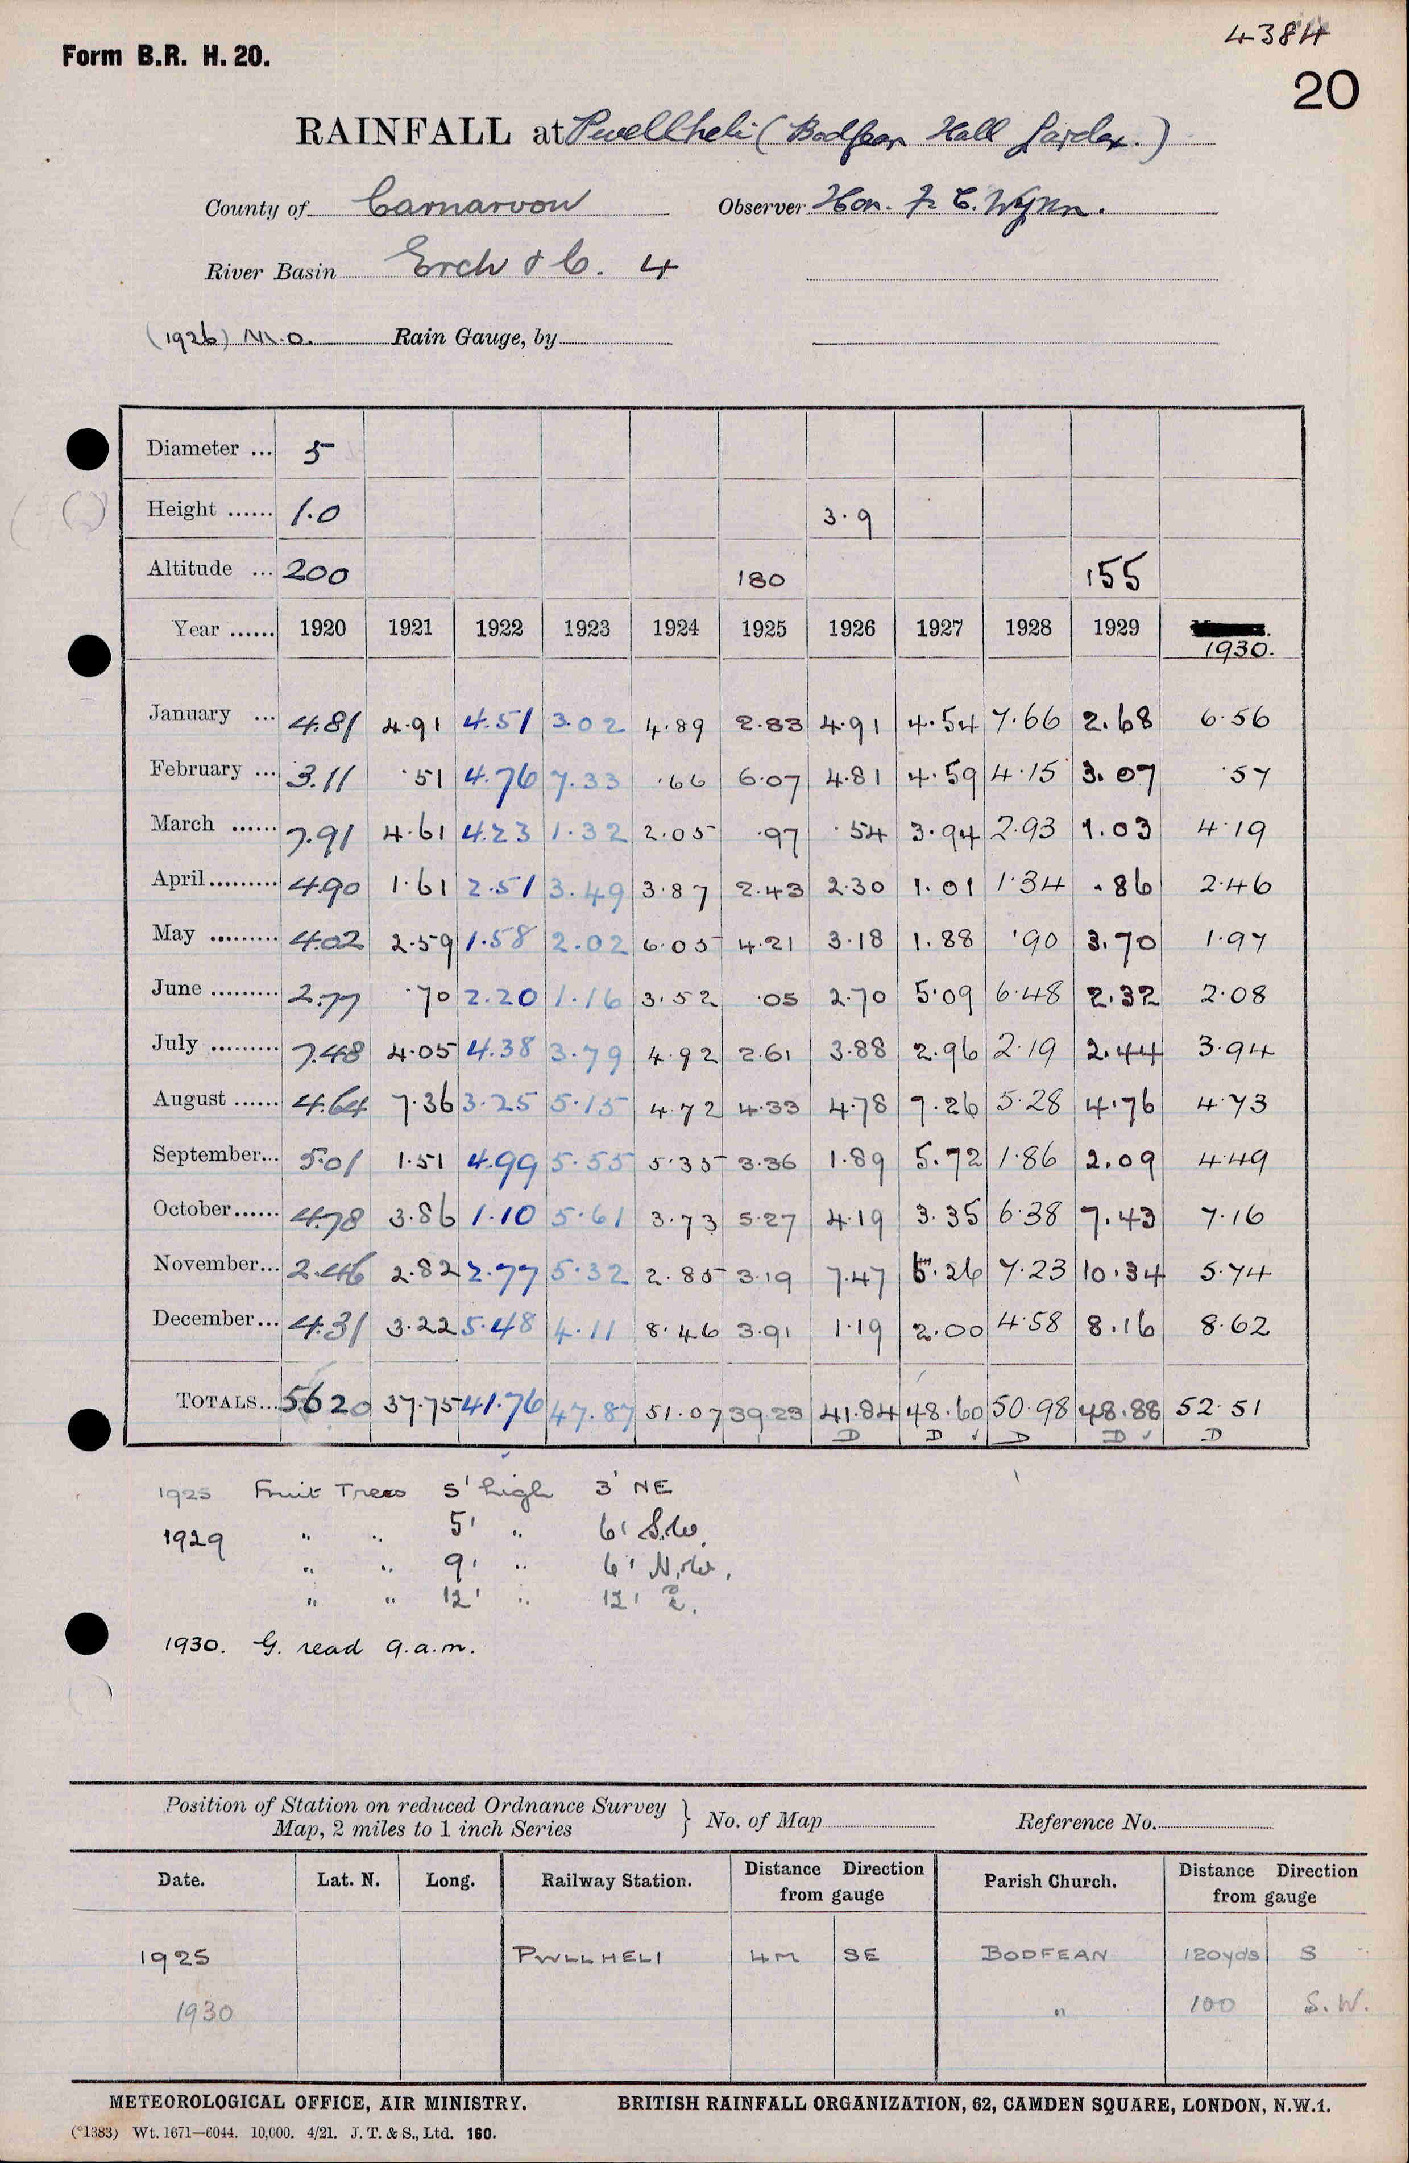 4384
Form B.R. H. 20.
20
RAINFALL at Pwllheli (Bodfean Hall Garden.)
County of Carnarvon Observer Hon. F. G. Wynn.
River Basin Erch &c. 4
(1926) M.O. Rain Gauge, by
Diameter ... 5
Height ...... 1.0 3.9
Altitude ... 200 180 155
Year ...... 1920 1921 1922 1923 1924 1925 1926 1927 1928 1929 1930.
January ... 4.81 4.91 4.51 3.02 4.89 2.33 4.91 4.54 7.66 2.68 6.56
February ... 3.11 .51 4.76 7.33 .66 6.07 4.81 4.59 4.15 3.07 .57
March ...... 7.91 4.61 4.23 1.32 2.05 .97 .54 3.94 2.93 1.03 4.19
April......... 4.90 1.61 2.51 3.49 3.87 2.43 2.30 1.01 1.34 .86 2.46
May ......... 4.02 2.59 1.58 2.02 6.05 4.21 3.18 1.88 .90 3.70 1.97
June ......... 2.77 .70 2.20 1.16 3.52 .05 2.70 5.09 6.48 2.32 2.08
July ......... 7.48 4.05 4.38 3.79 4.92 2.61 3.88 2.96 2.19 2.44 3.94
August ...... 4.64 7.36 3.25 5.15 4.72 4.33 4.78 7.26 5.28 4.76 4.73
September... 5.01 1.51 4.99 5.55 5.35 3.36 1.89 5.72 1.86 2.09 4.49
October...... 4.78 3.86 1.10 5.61 3.73 5.27 4.19 3.35 6.38 7.43 7.16
November... 2.46 2.82 2.77 5.32 2.85 3.19 7.47 6.26 7.23 10.34 5.74
December... 4.31 3.22 5.48 4.11 8.46 3.91 1.19 2.00 4.58 8.16 8.62
TOTALS... 5620 37.75 41.76 47.87 51.07 39.23 41.84 48.60 50.98 48.88 52.51
D D ✓ D D ✓ D
1925 Fruit Trees 5' high 3' NE
1929 " " 5' " 6' S.W.
" " 9' " 6' N.W.
" " 12' " 12' E.
1930. G. read 9.a.m.
Position of Station on reduced Ordnance Survey
Map, 2 miles to 1 inch Series } No. of Map Reference No.
Date. Lat. N. Long. Railway Station. Distance Direction from gauge Parish Church. Distance Direction from gauge
1925 PWLLHELI 4M SE BODFEAN 120yds S
1930 " 100 S.W.
METEOROLOGICAL OFFICE, AIR MINISTRY. BRITISH RAINFALL ORGANIZATION, 62, CAMDEN SQUARE, LONDON, N.W.1.
(*1383) Wt. 1671—6044. 10,000. 4/21. J. T. & S., Ltd. 160.